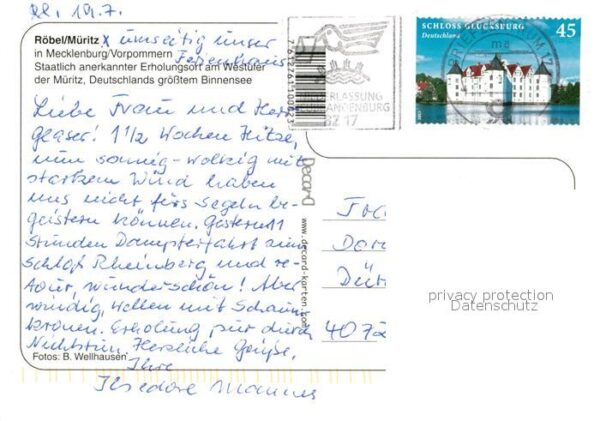 Röbel/Müritz X umseitig unser
Ferienhaus
in Mecklenburg/Vorpommern
Staatlich anerkannter Erholungsort am Westufer
der Müritz, Deutschlands größtem Binnensee
19.7.
Liebe Frau und Herr
Glaser! 1 1/2 Wochen Hitze,
nun sonnig-wolkig mit
starkem Wind haben
uns nicht fürs Segeln be-
geistern können. Gestern 11
Stunden Dampferfahrt zum
Schloß Rheinsberg und re-
tour, wunderschön! Aber
windig, Wellen mit Schaum
kronen. Erholung pur durch
Nichtstun. Herzliche Grüße,
Ihre
Fotos: B. Wellhausen
7612761100823
Decard
www.decard-karten.com
SCHLOSS GLÜCKSBURG 45
Deutschland
82 17
Dür
privacy protection
Datenschutz